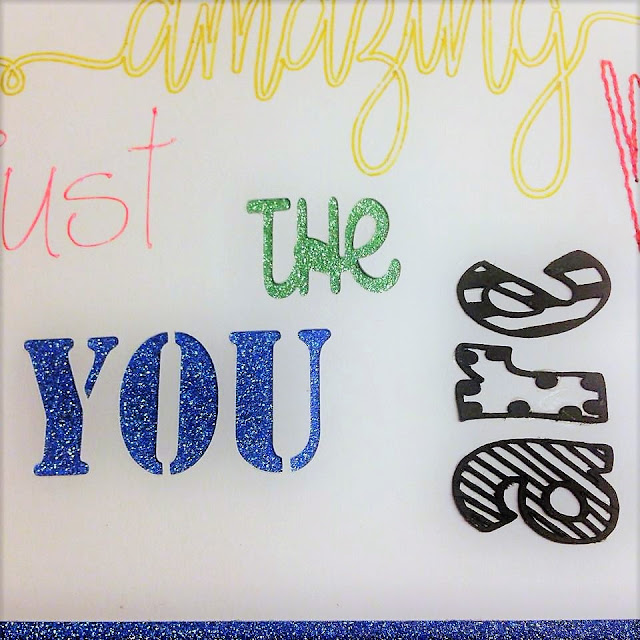 amazing
just
THe
YOU
are